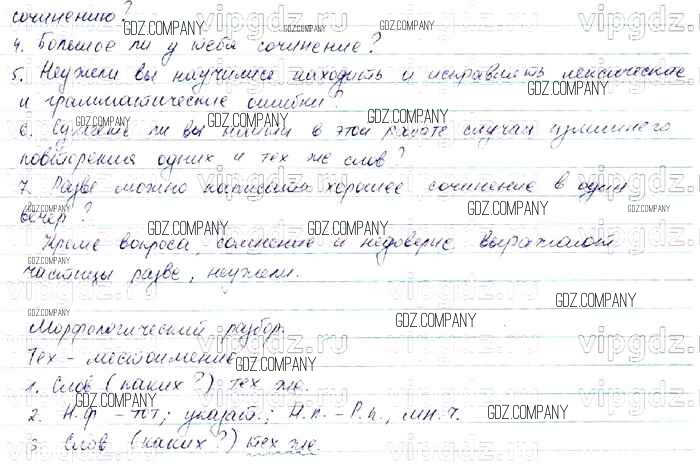 сочинению?
4. Большое ли у тебя сочинение?
5. Неужели вы научились находить и исправлять лексические
и грамматические ошибки?
6. Сумеете ли вы найти в этой работе случаи излишнего
повторения одних и тех же слов?
7. Разве можно написать хорошее сочинение в один
вечер?
Кроме вопроса, сомнение и недоверие выражают
частицы разве, неужели.
Морфологический разбор.
Тех - местоимение
1. Слов (каких?) тех же.
2. Н.ф - тот; указат.; Н.п. - Р.п., мн.ч.
3. Слов (каких?) тех же.
GDZ.COMPANY
vipgdz.ru